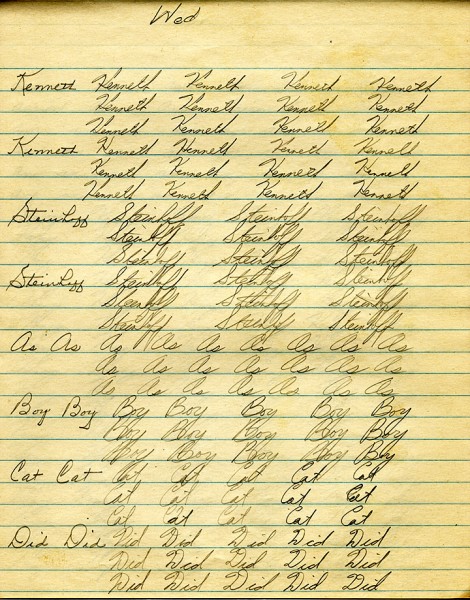 Wed
Kenneth Kenneth Kenneth Kenneth Kenneth
Kenneth Kenneth Kenneth Kenneth
Kenneth Kenneth Kenneth Kenneth
Kenneth Kenneth Kenneth Kenneth Kenneth
Kenneth Kenneth Kenneth Kenneth
Kenneth Kenneth Kenneth Kenneth
Steinhoff Steinhoff Steinhoff Steinhoff
Steinhoff Steinhoff Steinhoff
Steinhoff Steinhoff Steinhoff
Steinhoff Steinhoff Steinhoff Steinhoff
Steinhoff Steinhoff Steinhoff
Steinhoff Steinhoff Steinhoff
As As As As As As As As As
As As As As As As As
As As As As As As As
Boy Boy Boy Boy Boy Boy Boy
Boy Boy Boy Boy Boy
Boy Boy Boy Boy Boy
Cat Cat Cat Cat Cat Cat Cat
Cat Cat Cat Cat Cat
Cat Cat Cat Cat Cat
Did Did Did Did Did Did Did
Did Did Did Did Did
Did Did Did Did Did